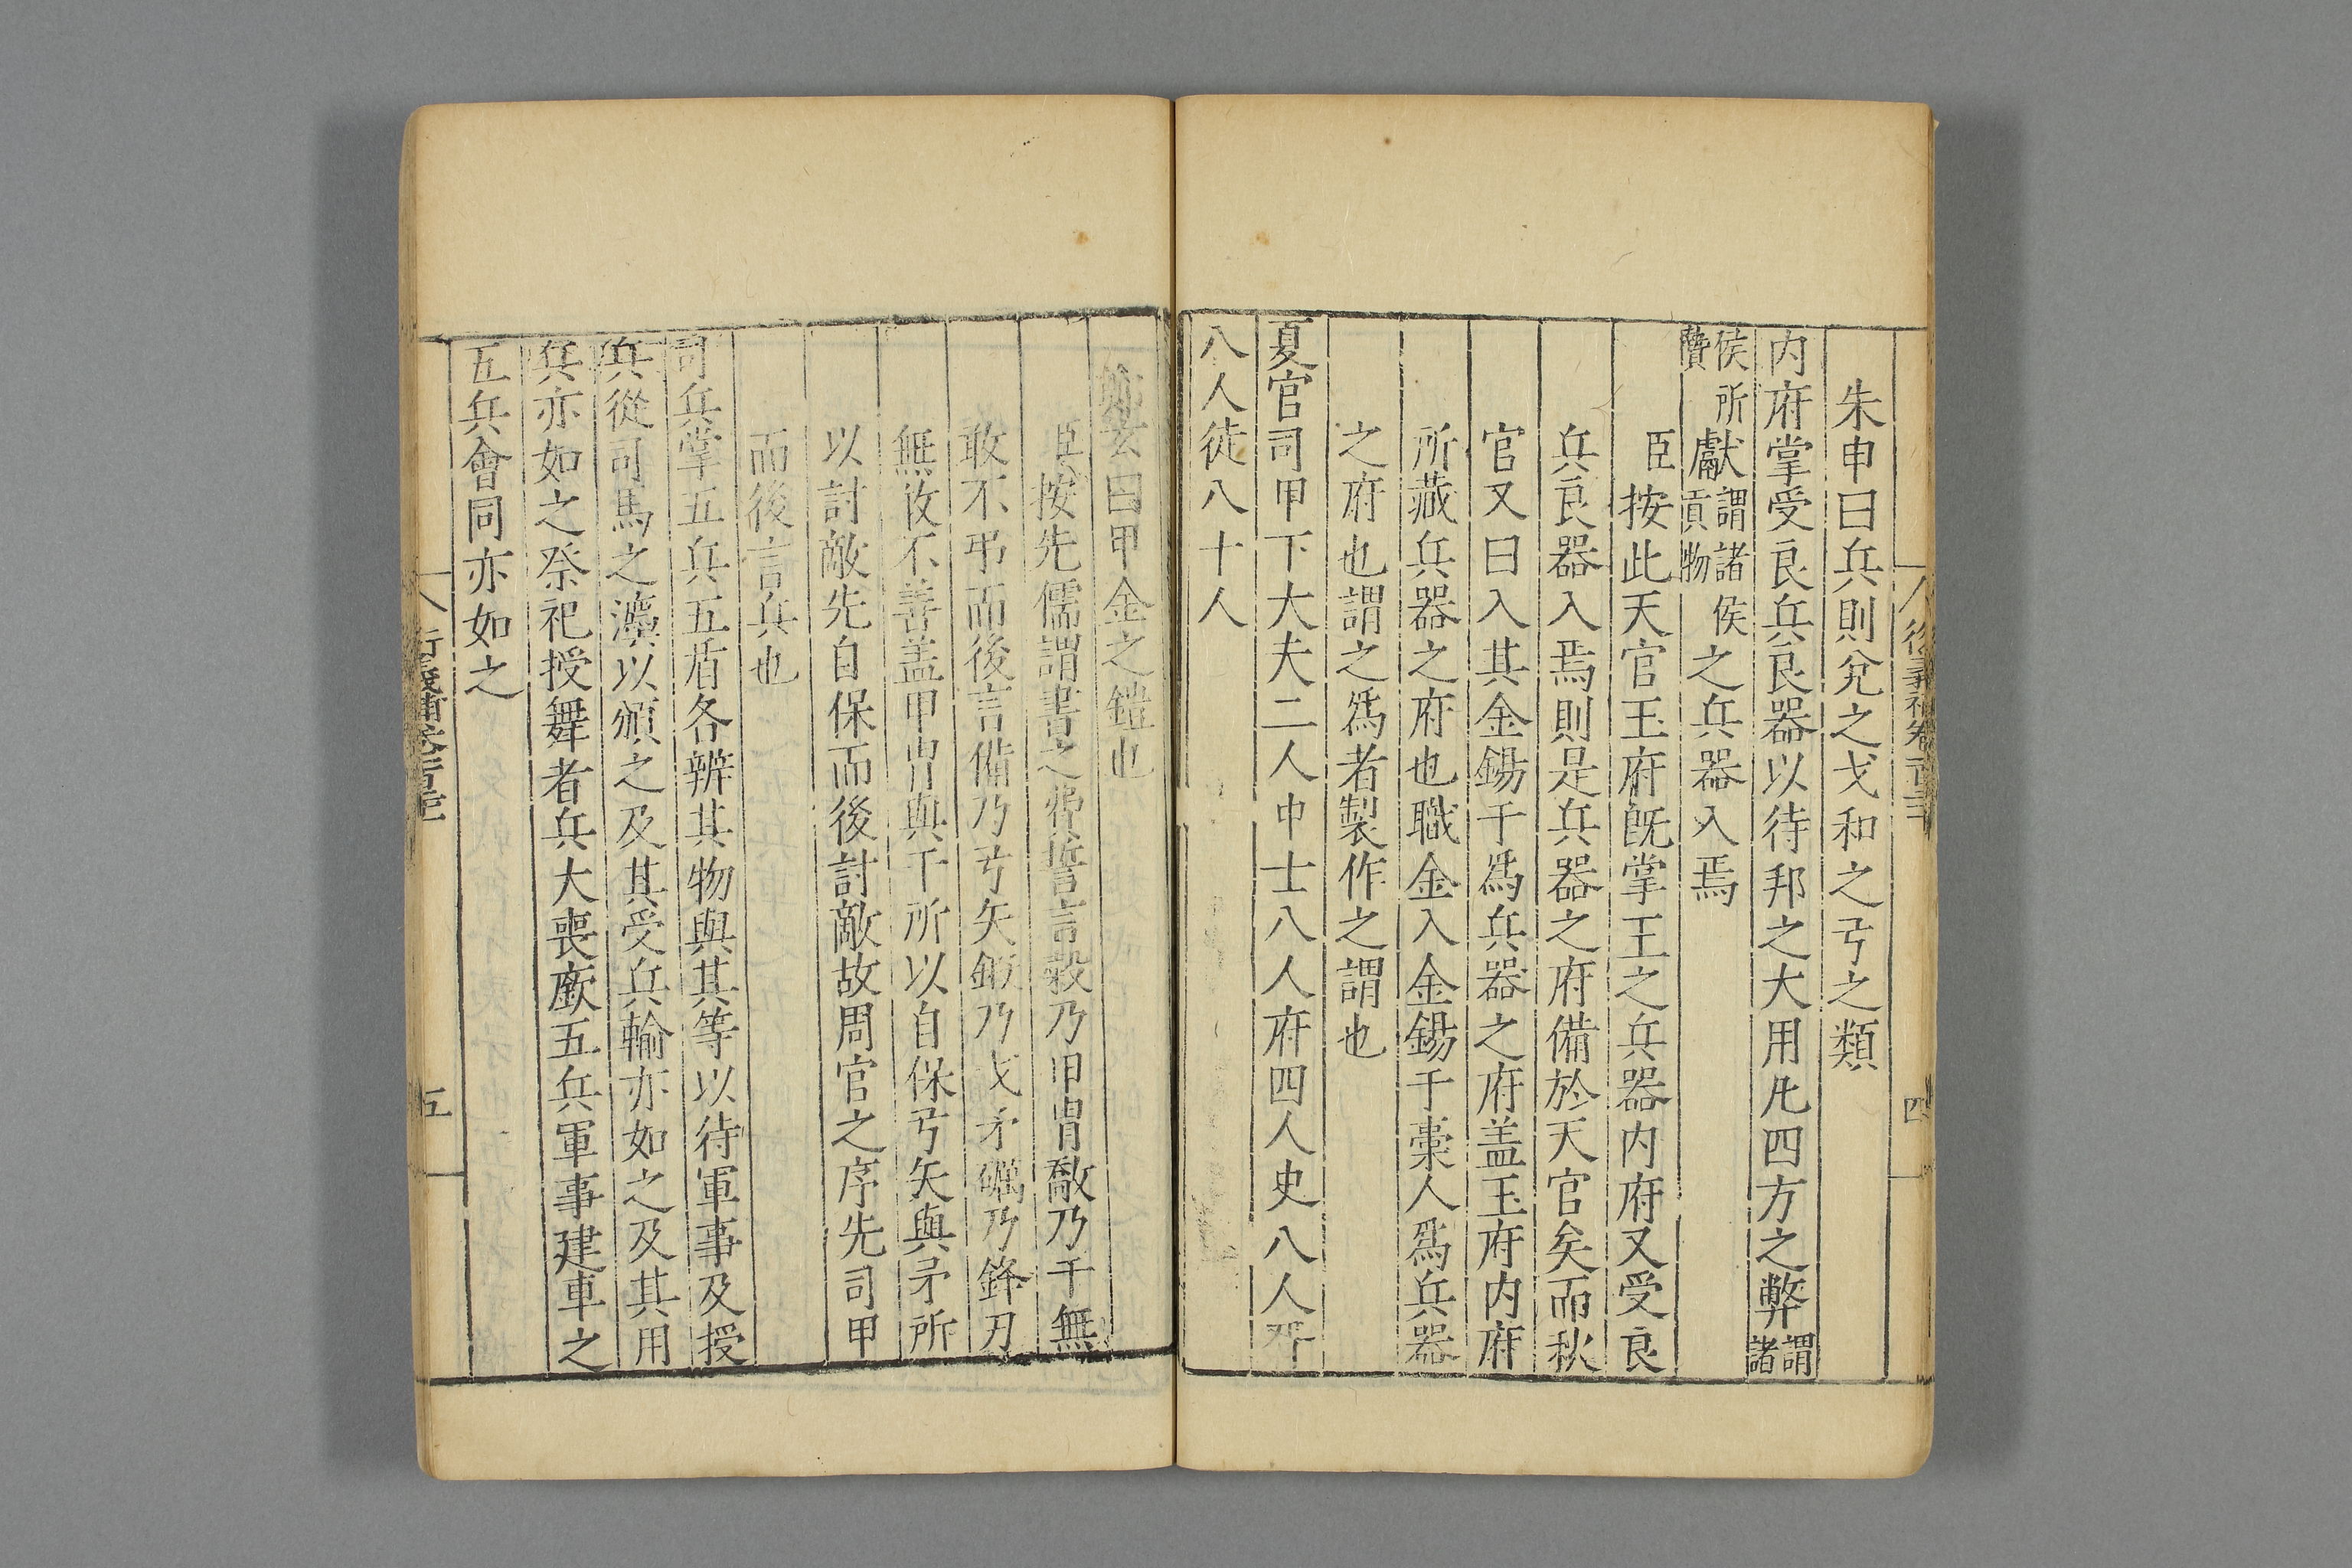 朱申曰兵則兊之戈和之弓之類
内府掌受良兵良器以待邦之大用凡四方之弊謂諸
侯所贄獻謂諸侯貢物之兵器入焉
臣按此天官玉府既掌王之兵器内府又受良
兵良器入焉則是兵器之府備於天官矣而秋
官又曰入其金錫于爲兵器之府盖玉府内府
所藏兵器之府也職金入金錫于槀人爲兵器
之府也謂之爲者製作之謂也
夏官司甲下大夫二人中士八人府四人史八人胥
八人徒八十人
四
鄭玄曰甲金之鎧也
臣按先儒謂書之費誓言榖乃甲冑敽乃干無
敢不弔而後言備乃弓矢鍛乃戈矛礪乃鋒刃
無攸不善盖甲冑與干所以自保弓矢與矛所
以討敵先自保而後討敵故周官之序先司甲
而後言兵也
司兵掌五兵五盾各辨其物與其等以待軍事及授
兵從司馬之灋以頒之及其受兵輸亦如之及其用
兵亦如之祭祀授舞者兵大喪廞五兵軍事建車之
五兵會同亦如之
五